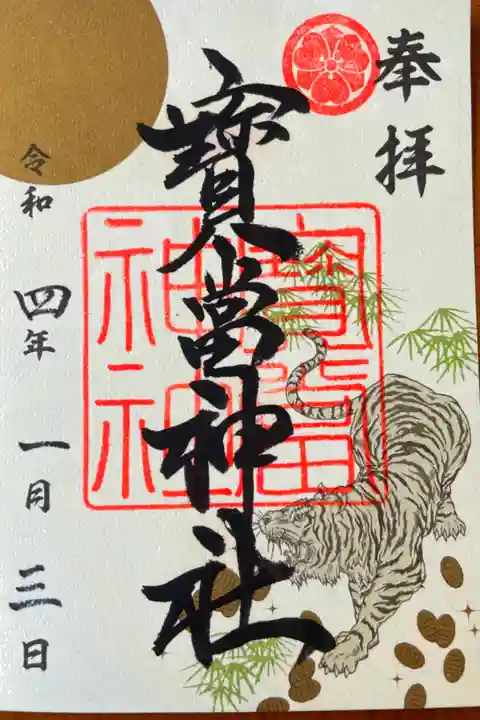 奉拝
寳當神社
寳當神社
令和四年一月三日